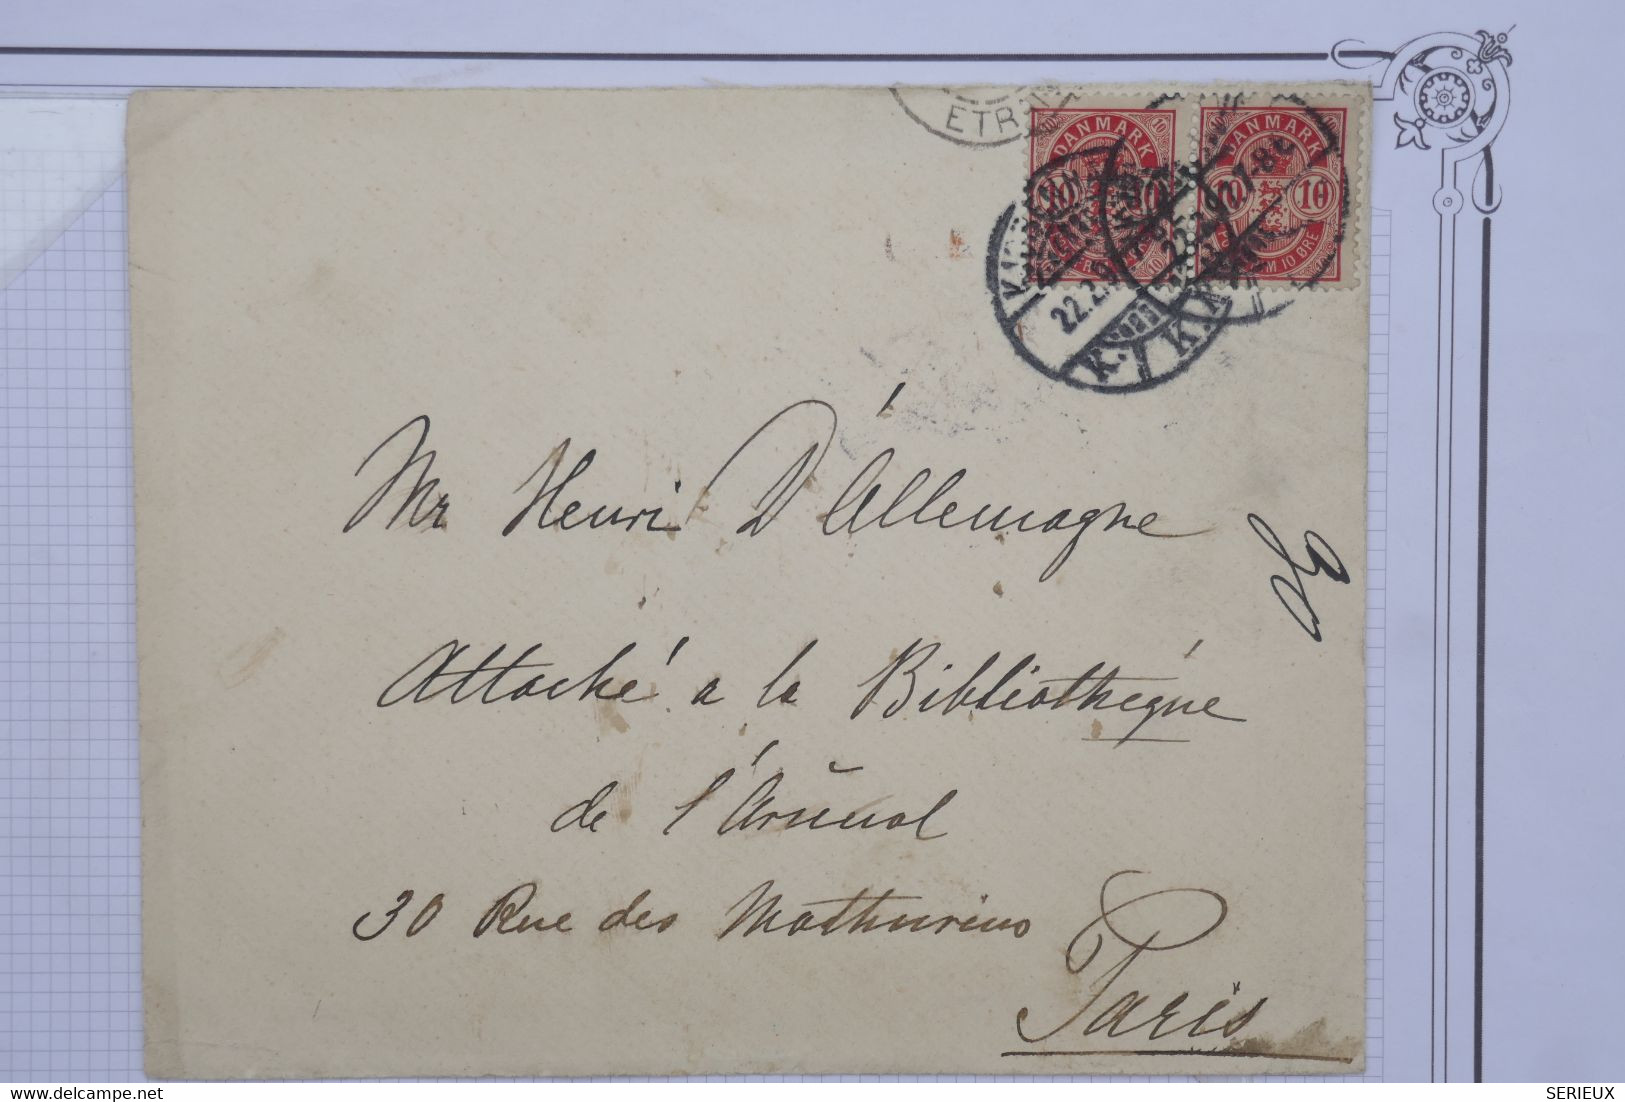 ETR
DANMARK DANMARK
10 10 10 10
M 10 ØRE
22.2.9 7-8
K. K.
Mr Henri D'Allemagne
Attaché a la Bibliothéque
de l'Arsenal
30 Rue des Mathurins
Paris
SERIEUX